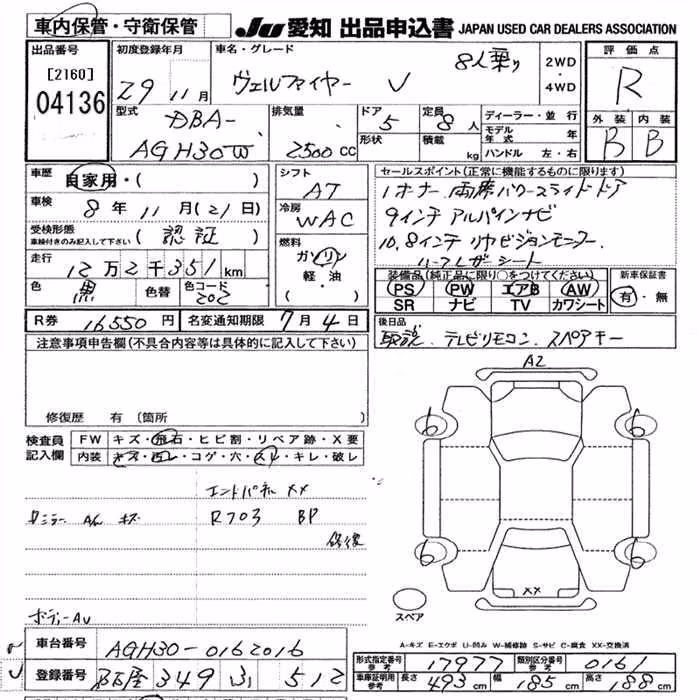 車内保管・守衛保管
JU 愛知 出品申込書 JAPAN USED CAR DEALERS ASSOCIATION
出品番号 初度登録年月 車名・グレード 評価点
[2160] 29 11月 ヴェルファイヤー V 8人乗り 2WD・4WD R
04136
型式 排気量 ドア 定員 ディーラー・並行 外装 内装
DBA- 5 8人 モデル年式 年 B B
AGH30W 2500cc 形状 積載 kg ハンドル 左・右
車歴 自家用・( ) シフト AT セールスポイント(正常に機能するものに限ります)
車検 8年11月(21日) 冷房 WAC 1オーナー 両席パワースライドドア
受検形態 車検付きのみ記入して下さい (認証) 9インチアルパインナビ
走行 12万2千351km 燃料 ガソリン・軽油・( ) 10.8インチリヤビジョンモニター
ハーフレザーシート
色 黒 色替 色コード 202 装備品(純正品に限り○をつけてください) 新車保証書
PS PW エアB AW 有・無
SR ナビ TV カワシート
R券 16550円 名変通知期限 7月4日 後日品
取説 テレビリモコン スペアキー
注意事項申告欄(不具合内容等は具体的に記入して下さい)
A2
修復歴 有 (箇所
6 6
検査員記入欄 FW キズ・飛石・ヒビ割・リペア跡・X要
内装 キズ・汚レ・コゲ・穴・スレ・キレ・破レ
エンドパネル XX
A/U キズ R703 BP
修復
6 6
XX
スペア
ボディーAU
A-キズ E-エクボ U-凹み W-補修跡 S-サビ C-腐食 XX-交換済
車台番号 AGH30-0162016
型式指定番号 参考 17977 類別区分番号 参考 0161
登録番号 名古屋 349 512
車庫証明用 参考 長さ 493cm 幅 185cm 高さ 188cm